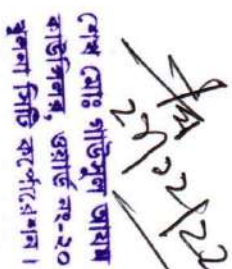 শেখ মোঃ গাউসুল আজম
কাউন্সিলর, ওয়ার্ড নং-২০
খুলনা সিটি কর্পোরেশন।